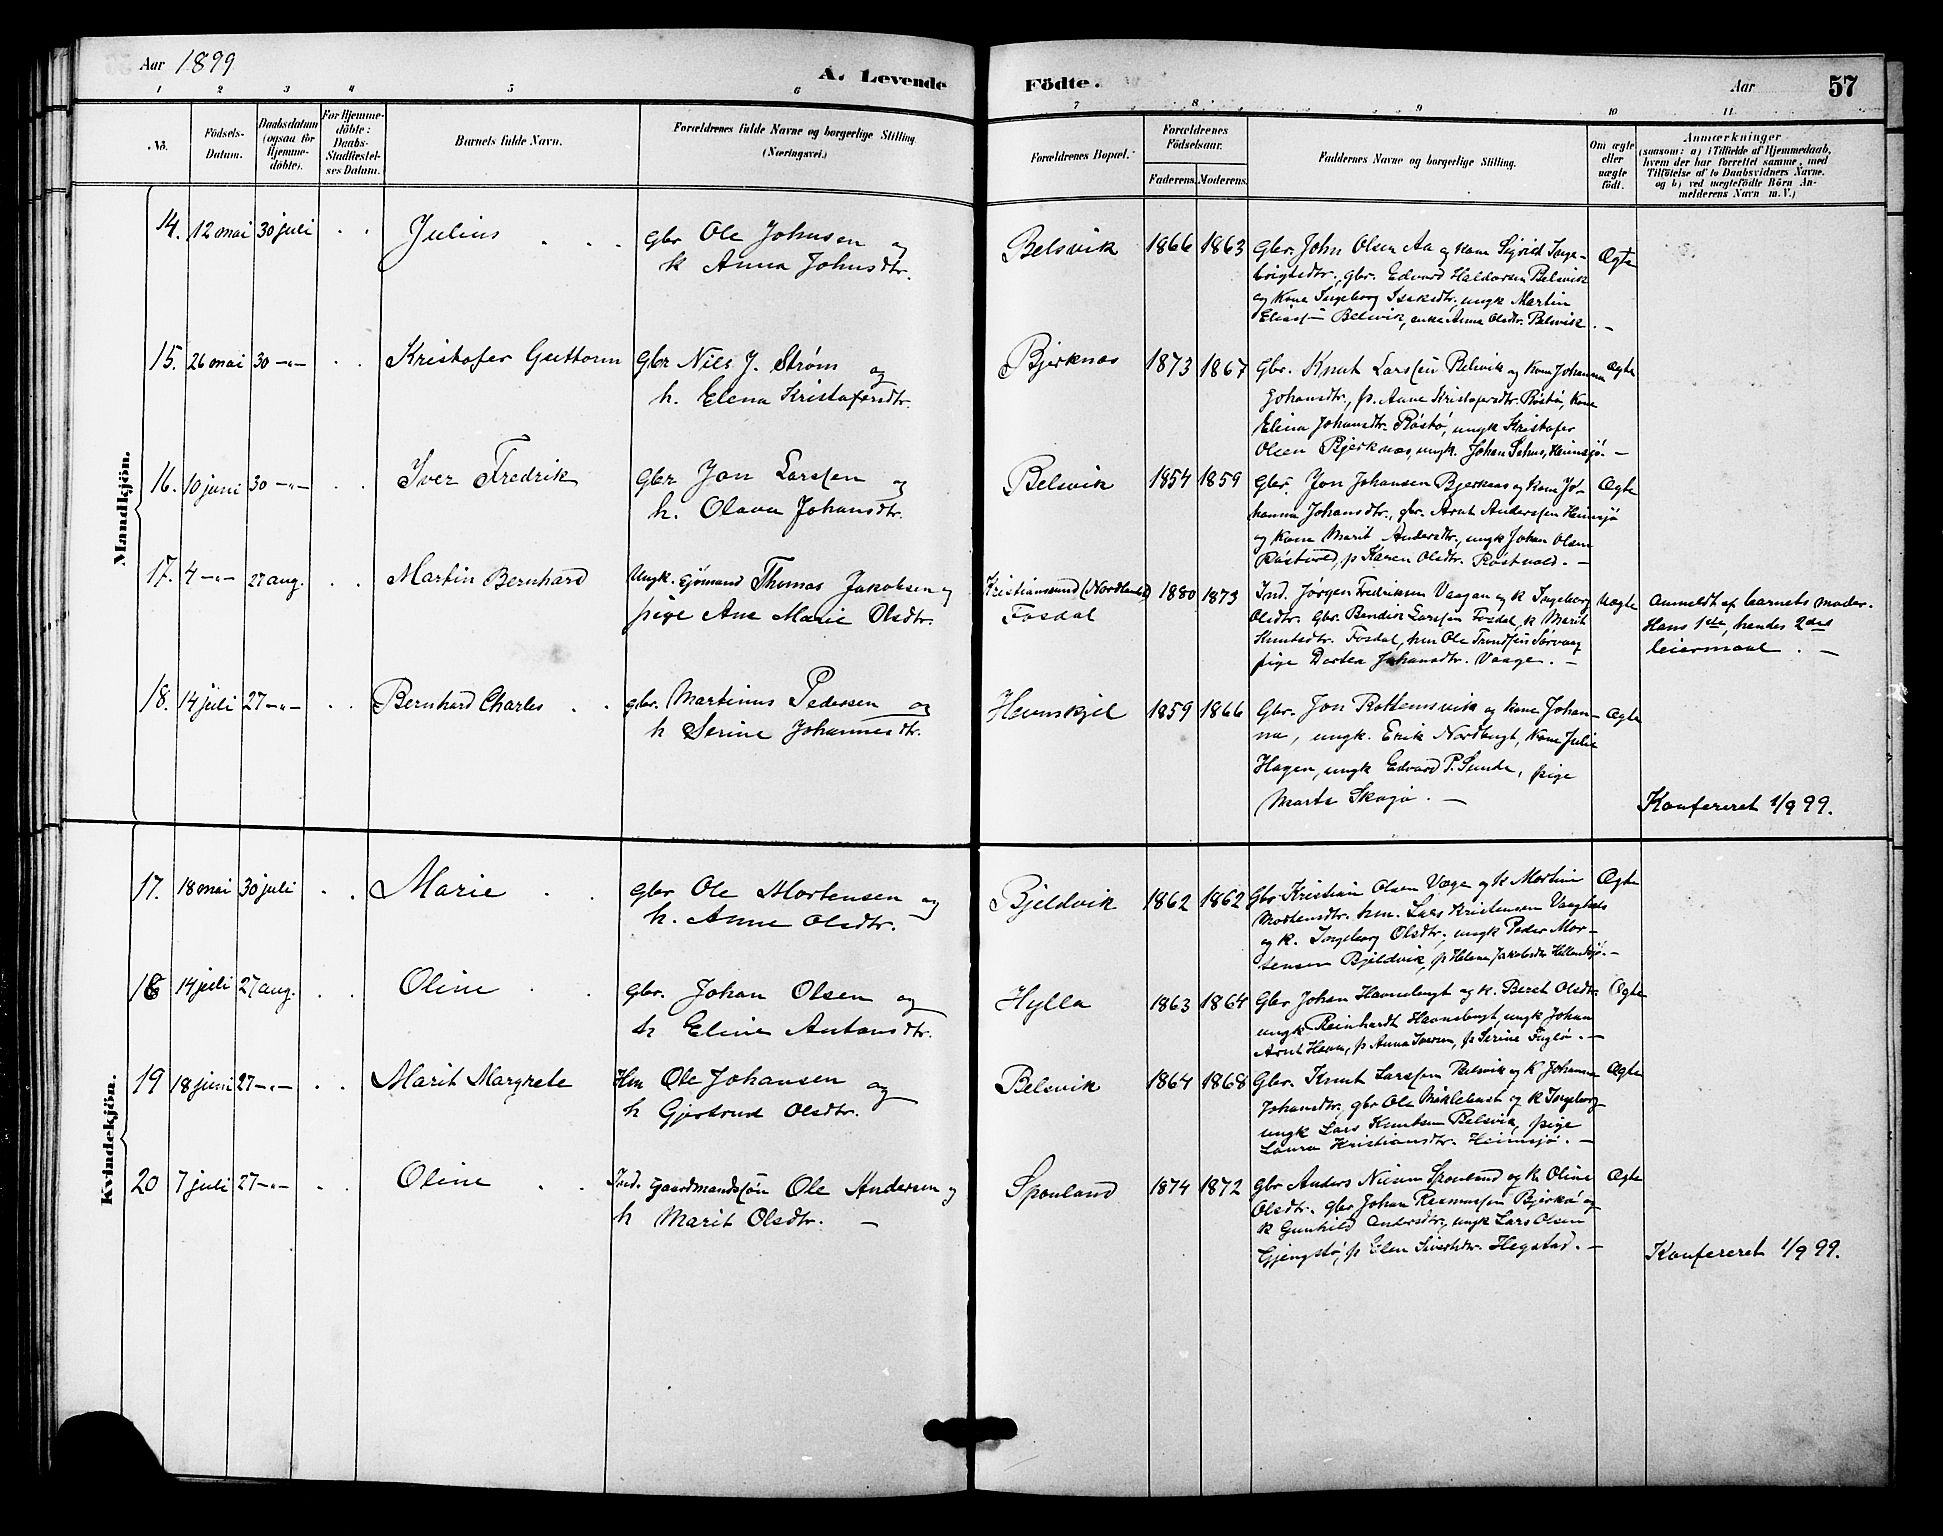 Aar 1899
A. Levende Födte.
Aar
57
1 2 3 4 5 6 7 8 9 10 11
No.
Födsels-
Datum.
Daabsdatum
(ogsaa for
Hjemme-
döbte).
For Hjemme-
döbte:
Daabs-
Stadfæstel-
ses Datum.
Barnets fulde Navn.
Forældrenes fulde Navne og borgerlige Stilling.
(Næringsvei.)
Forældrenes Bopæl.
Forældrenes
Födselsaar.
Faderens. Moderens.
Faddernes Navne og borgerlige Stilling.
Om ægte
eller
uægte
födt.
Anmærkninger
(saasom: a) i Tilfælde af Hjemmedaab,
hvem der har forrettet samme, med
Tilföielse af to Daabsvidners Navne.
og b) ved uægtefödte Börn An-
melderens Navn m. V.)
Mandkjön.
14. 12 mai 30 juli Julius Gbr Ole Johnsen og
k Anna Johnsdtr.
Belsvik 1866 1863 Gbr. John Olsen Aa og kone Sigrid Inge-
brigtsdtr, gbr. Edvard Haldorsen Belsvik
og kone Ingeborg Isaksdtr, ungk Martin
Eliassen Belsvik, enke Anna Olsdtr. Belsvik. —
Ægte
15. 26 mai 30 -"- Kristofer Guttorm Gbr Nils J. Strøm og
h. Elena Kristofersdtr.
Bjerknes 1873 1867 Gbr. Knut Larssen Belsvik og kone Johanna
Johansdtr., p. Anne Kristofersdtr. Røstø, kone
Elina Johansdtr. Røstø, ungk Kristofer
Olsen Bjerknes, ungk. Johan Heimsjö. —
Ægte
16. 10 juni 30 -"- Iver Fredrik Gbr Jon Larssen og
h. Olava Johansdtr.
Belsvik 1854 1859 Gbr. Jon Johansen Bjerknes og kone Jo-
hanna Johansdtr., gbr. Arnt Anderssen Heimsjø
og kone Marit Andersdtr, ungk Johan Olsen
Røstvold, p Karen Olsdtr. Røstvold. —
Ægte
17. 4 -"- 27 aug. Martin Bernhard Ungk. sjömand Thomas Jakobsen og
pige Ane Marie Olsdtr.
Kristianssund (Nordlandet)
Fosdal
1880 1873 Ind. Jørgen Fredriksen Vaagan og k Ingeborg
Olsdtr. Gbr. Bendik Larssen Fosdal, k Marit
Knutsdtr. Fosdal, hm Ole Trondsen Sörvaag
pige Dortea Johansdtr. Vaage. —
Uægte
Anmeldt af barnets moder.
Hans 1ste, hendes 2det
leiermaal. —
18. 14 juli 27 -"- Bernhard Charles gbr. Martinus Pedersen og
h Serine Johannesdtr.
Hevnskjel 1859 1866 Gbr. Jon Rottemsvik og kone Johan-
na, ungk. Erik Nordbugt, kone Julie
Hagen, ungk Edvard P. Sunde, pige
Marta Skagø. —
Ægte
Konfereret 1/9 99.
Kvindekjön.
17. 18 mai 30 juli Marie Gbr Ole Mortensen og
h. Anne Olsdtr.
Bjeldvik 1862 1862 Gbr Kristian Olsen Vaage og k Martine
Mortensdtr. hm. Lars Kristensen
og k. Ingeborg Olsdtr, ungk Peder Mor-
tensen Bjeldvik, p Helena Jakobsdtr Hellandsjö. —
Ægte
18 14 juli 27 aug. Oline Gbr. Johan Olsen og
h Eline Antonsdtr.
Hylla 1863 1864 Gbr Johan Havnebugt og k. Beret Olsdtr
ungk Reinhardt Havnebugt, ungk Johan
Arnt Havn, p Anna Iversen, p Serine Fuglø. —
Ægte
19 18 juni 27 -"- Marit Margrete Hm Ole Johansen og
h Gjertrud Olsdtr.
Belsvik 1864 1868 Gbr. Knut Larssen Belsvik og k Johanna
Johansdtr, gbr Ole Miklebust og k Ingeborg
ungk Lars Knutsen Belsvik, pige
Laura Kristiansdtr. Heimsjö. —
Ægte
20 7 juli 27 -"- Oline Ind. gaardmandssön Ole Andersen og
h Marit Olsdtr. —
Spouland 1874 1872 Gbr Anders Spouland og k Oline
Olsdtr. Gbr Johan Rasmussen Bjerkø og
k Gunhild Andersdtr, ungk Lars Olsen
Gjengstø, p Elen Sivertsdtr. Hegstad. —
Ægte
Konfereret 1/9 99.